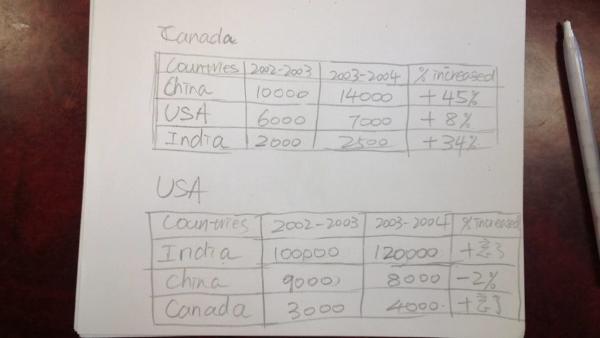 Canada
Countries 2002-2003 2003-2004 % increased
China 10000 14000 +45%
USA 6000 7000 +8%
India 2000 2500 +34%
USA
Countries 2002-2003 2003-2004 % increased
India 100000 120000
China 9000 8000 -2%
Canada 3000 4000